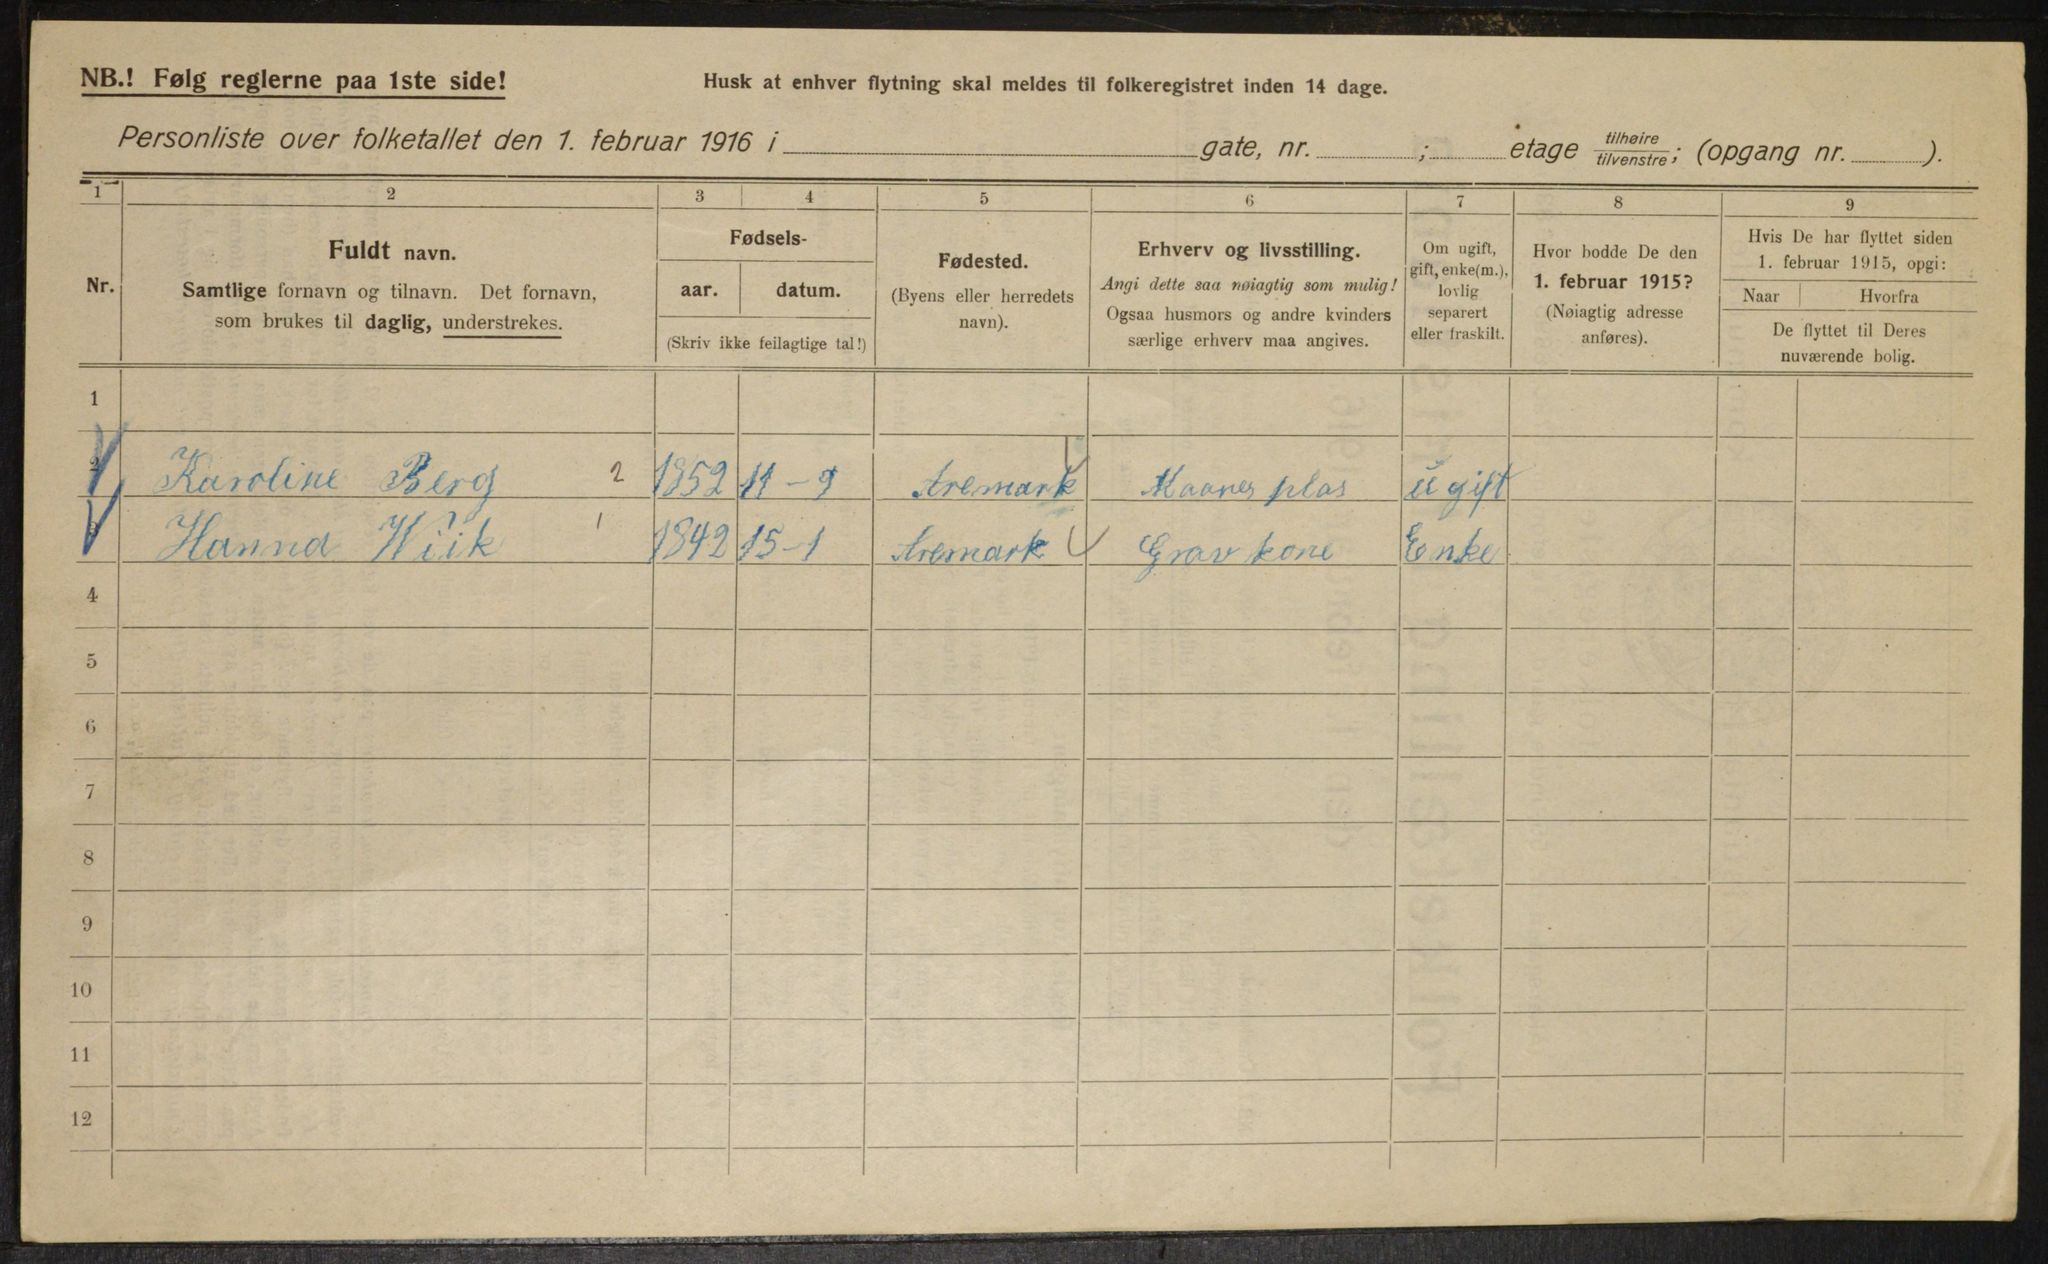 NB.! Følg reglerne paa 1ste side!
Husk at enhver flytning skal meldes til folkeregistret inden 14 dage.
Personliste over folketallet den 1. februar 1916 i gate, nr. ; etage tilhøire tilvenstre; (opgang nr. ).
1 2 3 4 5 6 7 8 9
Nr.
Fuldt navn.
Samtlige fornavn og tilnavn. Det fornavn,
som brukes til daglig, understrekes.
Fødsels-
aar. datum.
(Skriv ikke feilagtige tal!)
Fødested.
(Byens eller herredets
navn).
Erhverv og livsstilling.
Angi dette saa nøiagtig som mulig!
Ogsaa husmors og andre kvinders
særlige erhverv maa angives.
Om ugift,
gift, enke(m.),
lovlig
separert
eller fraskilt.
Hvor bodde De den
1. februar 1915?
(Nøiagtig adresse
anføres).
Hvis De har flyttet siden
1. februar 1915, opgi:
Naar Hvorfra
De flyttet til Deres
nuværende bolig.
1
2 Karoline Berg 2 1852 11-9 Aremark plas ugift
3 Hanna Wiik 1 1842 15-1 Aremark Grav kone Enke
4
5
6
7
8
9
10
11
12